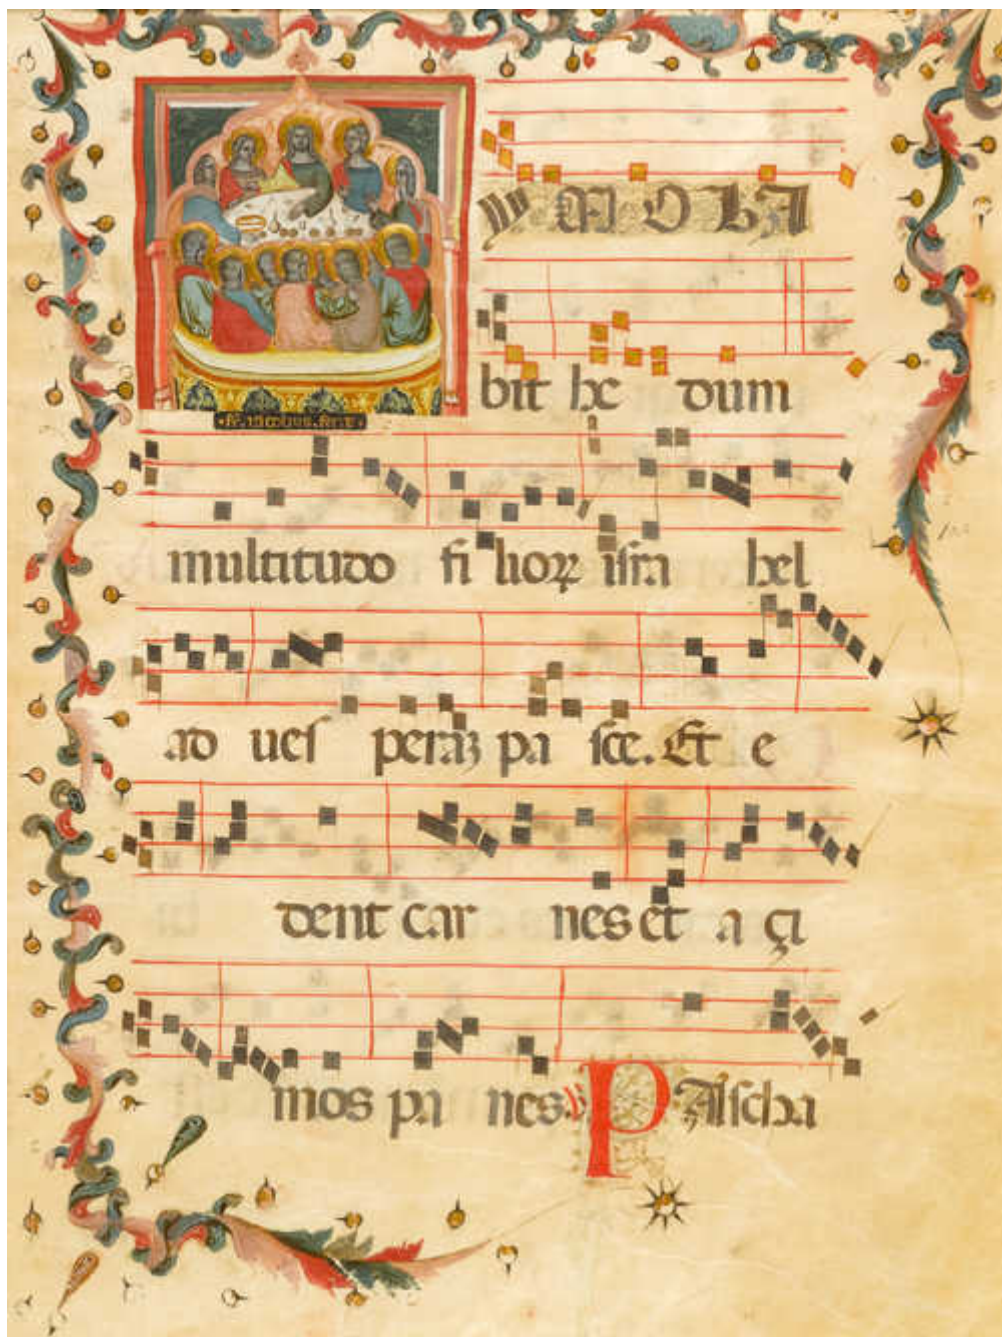 YMOLA
bit hc dum
multitudo filioꝝ israhel
ad vesperaʒ pasce. Et e
dent carnes et açi
mos panes. ℣ PAscha